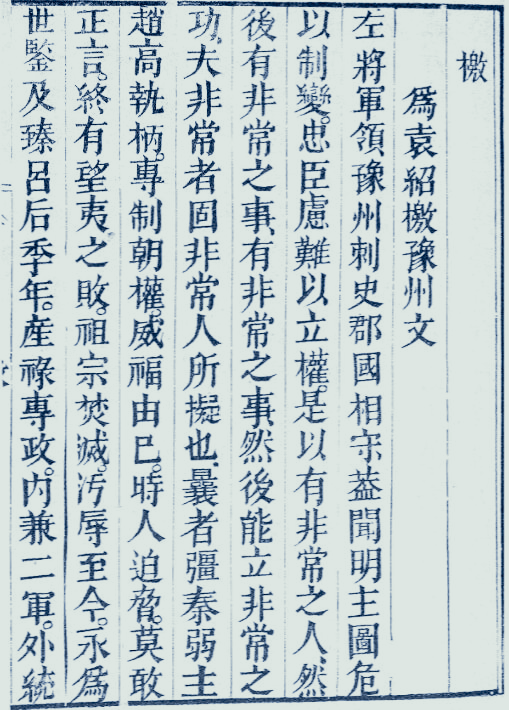 檄
為袁紹檄豫州文
左將軍領豫州刺史郡國相守葢聞明主圖危
以制變。忠臣慮難以立權。是以有非常之人、然
後有非常之事、有非常之事、然後能立非常之
功。夫非常者固非常人所擬也、曩者彊秦弱主
趙高執柄。專制朝權。威福由巳。時人迫脅。莫敢
正言。終有望夷之敗。祖宗焚滅。汚辱至今。永為
世鑒及臻呂后季年。產祿專政。内兼二軍。外統